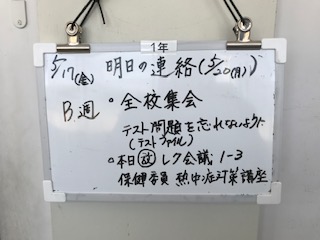 1年
5/17(金) 明日の連絡(5/20(月))
B週 ・全校集会
テスト問題を忘れないように
(テストファイル)
・本日放 レク会議 1-3
保健委員 熱中症対策講座